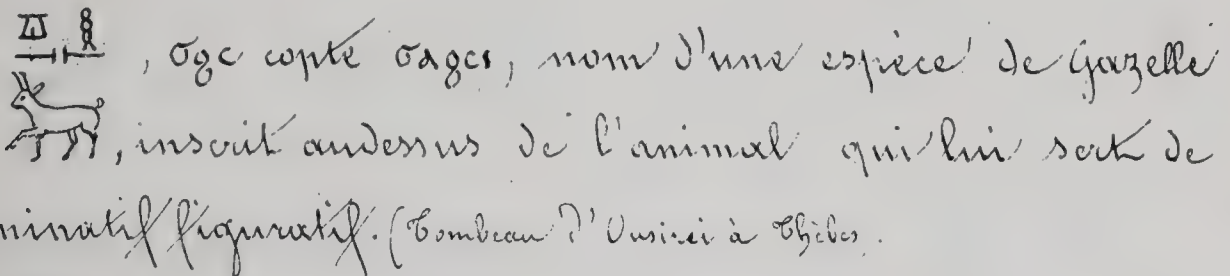 , ϭϩⲥ copte ϭⲁϩⲥⲓ, nom d'une espèce de Gazelle
, inscrit audessus de l'animal qui lui sert de
minatif figuratif. (Tombeau d'Ousirei à Thèbes.